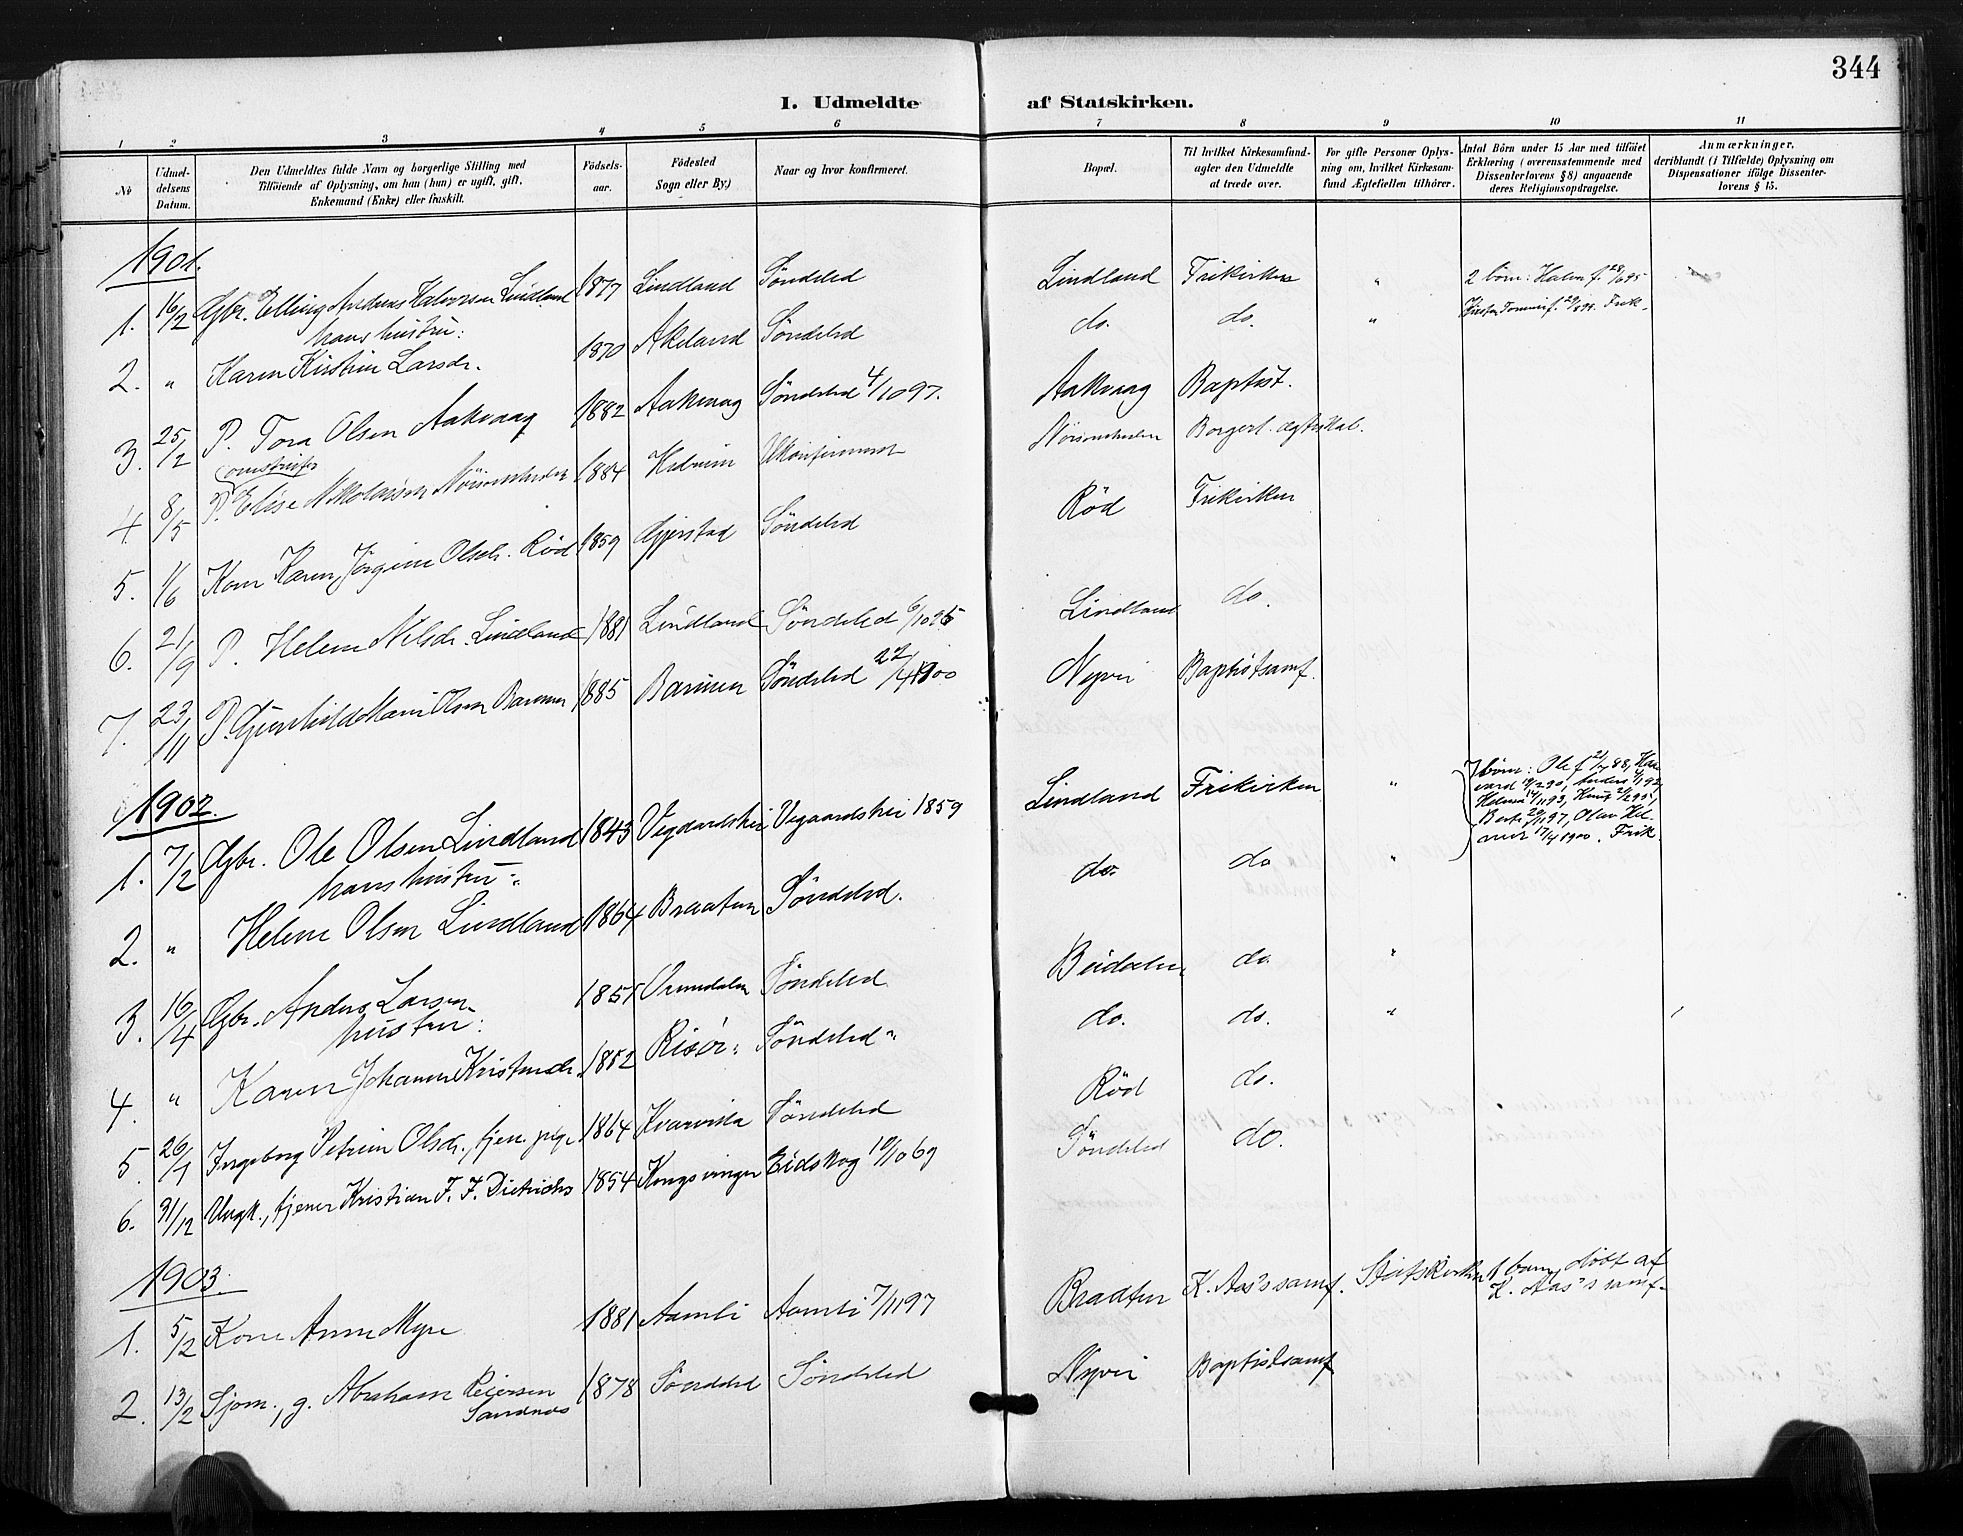 344
I. Udmeldte af Statskirken.
1 2 3 4 5 6 7 8 9 10 11
No
Udmel-
delsens
Datum.
Den Udmeldtes fulde Navn og borgerlige Stilling med
Tilføiende af Oplysning, om han (hun) er ugift, gift,
Enkemand (Enke) eller fraskilt.
Fødsels-
aar.
Fødested
Sogn eller By.)
Naar og hvor konfirmeret.
Bopæl.
Til hvilket Kirkesamfund-
agter den Udmeldte
at træde over.
For gifte Personer Oplys-
ning om, hvilket Kirkesam-
fund Ægtefællen tilhører.
Antal Børn under 15 Aar med tilføiet
Erklæring (overensstemmende med
Dissenterlovens § 8) angaaende
deres Religionsopdragelse.
Anmærkninger,
deriblandt (i Tilfælde) Oplysning om
Dispensationer ifølge Dissenter-
lovens § 15.
1901.
1. 16/2 Gbr. Elling Andreas Halvorsen Lindland 1877 Lindland Søndeled Lindland Frikirken " 2 børn: Halvor f. 28/6 95
hans hustru:
2. " Karen Kirstine Larsdr. 1870 Akeland Søndeled do. do. "
3. 25/2 P. Tora Olsen Aakvaag 1882 Aakvaag Søndeled 4/10 97. Aakvaag Baptist.
4. 8/5 P. Elise Nikolaisen 1884 Ukonfirmeret Borgerl. ægteskab.
5. 1/6 Kone Karen Jørgine Olsdr. Rød 1859 Gjerstad Søndeled Rød Frikirken
6. 21/9 P. Helene Nilsdr. Lindland 1881 Lindland Søndeled 6/10 95 Lindland do.
7. 23/11 P. Gunhild Marie Olsen Barmen 1885 Barmen Søndeled 22/4 1900 Nyvei Baptistsamf.
1902.
1. 7/2 Gbr. Ole Olsen Lindland 1843 Vegaardshei Vegaardshei 1859 Lindland Frikirken " 7 børn: Ole f. 21/7 88, Hal-
vard 19/2 90, Anders 4/1 92,
Helena 14/11 93, Knut 21/2 95,
Berte 20/11 97, Olav Hel-
mer 17/4 1900. Frik.
hans hustru:
2. " Helene Olsen Lindland 1864 Braaten Søndeled. do. do "
3. 16/4 Gbr. Anders Larsen 1855 Søndeled do. "
hustru:
4. " Karen Johanne Kristensdr. 1852 Risør " Søndeled " do. do. "
5. 26/7 Ingeborg Petrine Olsdr., tjen. pige 1864 Kvarvika Søndeled Rød do.
6. 31/12 Ungk., tjener Kristian F. F. Dietrichs 1854 Kongsvinger Eidskog 10/10 69 Søndeled do.
1903.
1. 5/2 Kone Anne Myre 1881 Aamli Aamli 7/11 97 Braaten K. Aas's samf. Statskirken 1 barn, døbt af
K. Aas's samf.
2. 13/2 Sjøm., g. Abraham Reiersen 1878 Søndeled Søndeled Nyvei Baptistsamf.
Sandnes